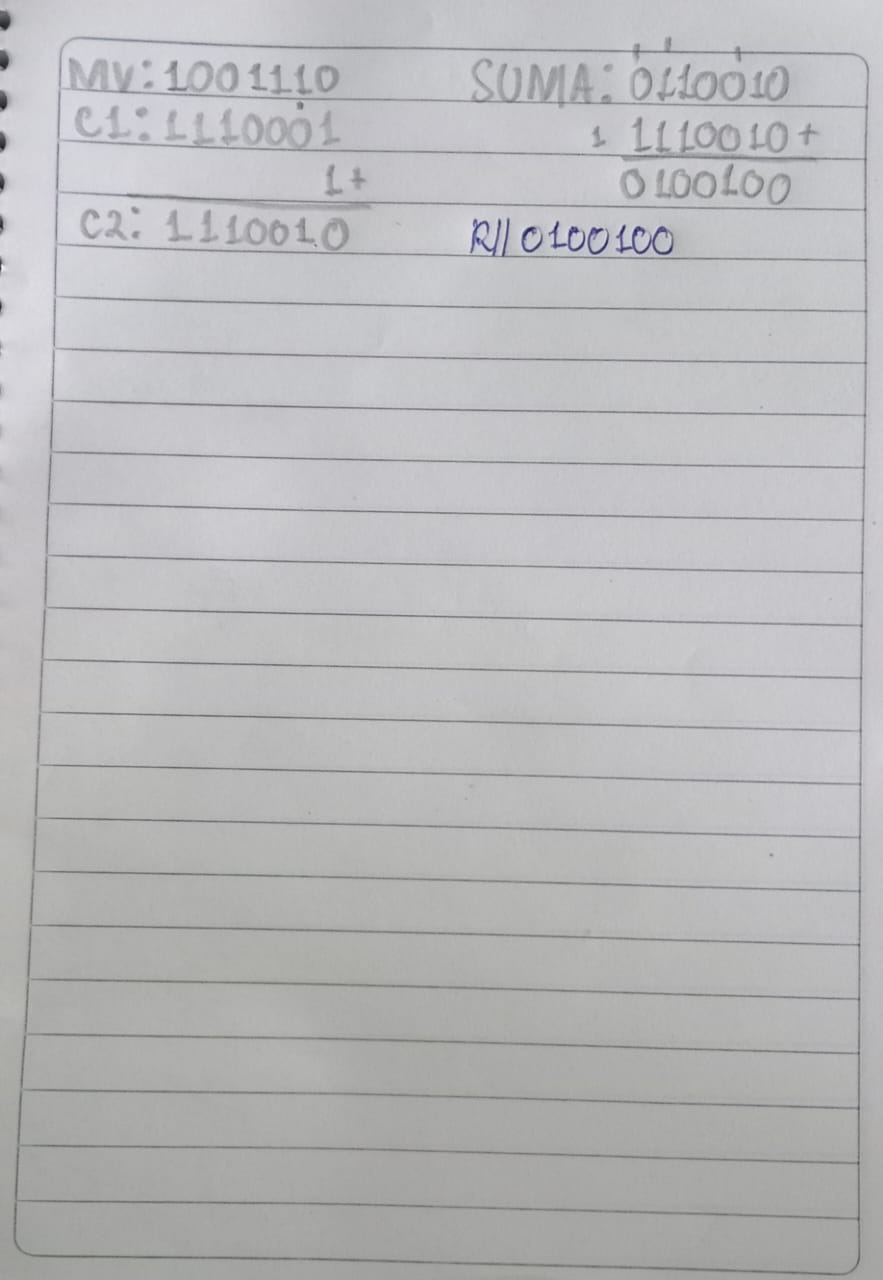 MV: 1001110
C1: 1110001
1+
C2: 1110010
SUMA: 0110010
1 1110010+
0100100
R// 0100100